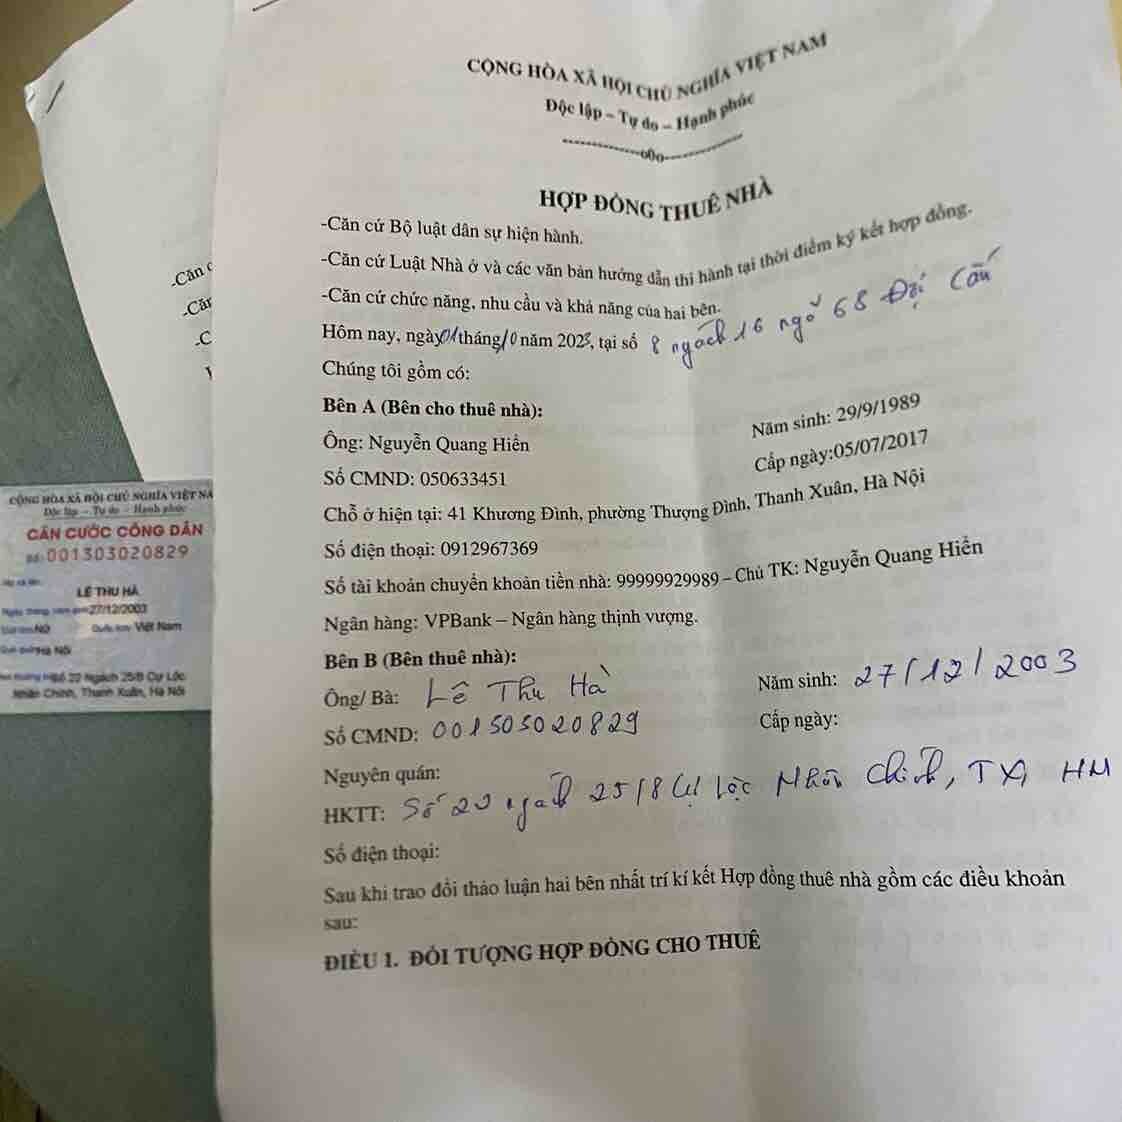 CỘNG HÒA XÃ HỘI CHỦ NGHĨA VIỆT NAM
Độc lập – Tự do – Hạnh phúc
---------------o0o---------------
HỢP ĐỒNG THUÊ NHÀ
-Căn cứ Bộ luật dân sự hiện hành.
-Căn cứ Luật Nhà ở và các văn bản hướng dẫn thi hành tại thời điểm ký kết hợp đồng.
-Căn cứ chức năng, nhu cầu và khả năng của hai bên.
Hôm nay, ngày 01 tháng 10 năm 2023, tại số 8 ngách 16 ngõ 68 Đội Cấn
Chúng tôi gồm có:
Bên A (Bên cho thuê nhà):
Ông: Nguyễn Quang Hiển Năm sinh: 29/9/1989
Số CMND: 050633451 Cấp ngày:05/07/2017
Chỗ ở hiện tại: 41 Khương Đình, phường Thượng Đình, Thanh Xuân, Hà Nội
Số điện thoại: 0912967369
Số tài khoản chuyển khoản tiền nhà: 99999929989 – Chủ TK: Nguyễn Quang Hiển
Ngân hàng: VPBank – Ngân hàng thịnh vượng.
Bên B (Bên thuê nhà):
Ông/ Bà: Lê Thu Hà Năm sinh: 27/12/2003
Số CMND: 001303020829 Cấp ngày:
Nguyên quán:
HKTT: Số 22 ngách 25/8 Cự Lộc Nhân Chính, TX, HN
Số điện thoại:
Sau khi trao đổi thảo luận hai bên nhất trí kí kết Hợp đồng thuê nhà gồm các điều khoản
sau:
ĐIỀU 1. ĐỐI TƯỢNG HỢP ĐỒNG CHO THUÊ
-Căn
-Căn
-C
CỘNG HÒA XÃ HỘI CHỦ NGHĨA VIỆT NA
Độc lập – Tự do – Hạnh phúc
CĂN CƯỚC CÔNG DÂN
Số: 001303020829
LÊ THU HÀ
27/12/2003
Nữ Việt Nam
Hà Nội
Số 22 Ngách 25/8 Cự Lộc
Nhân Chính, Thanh Xuân, Hà Nội